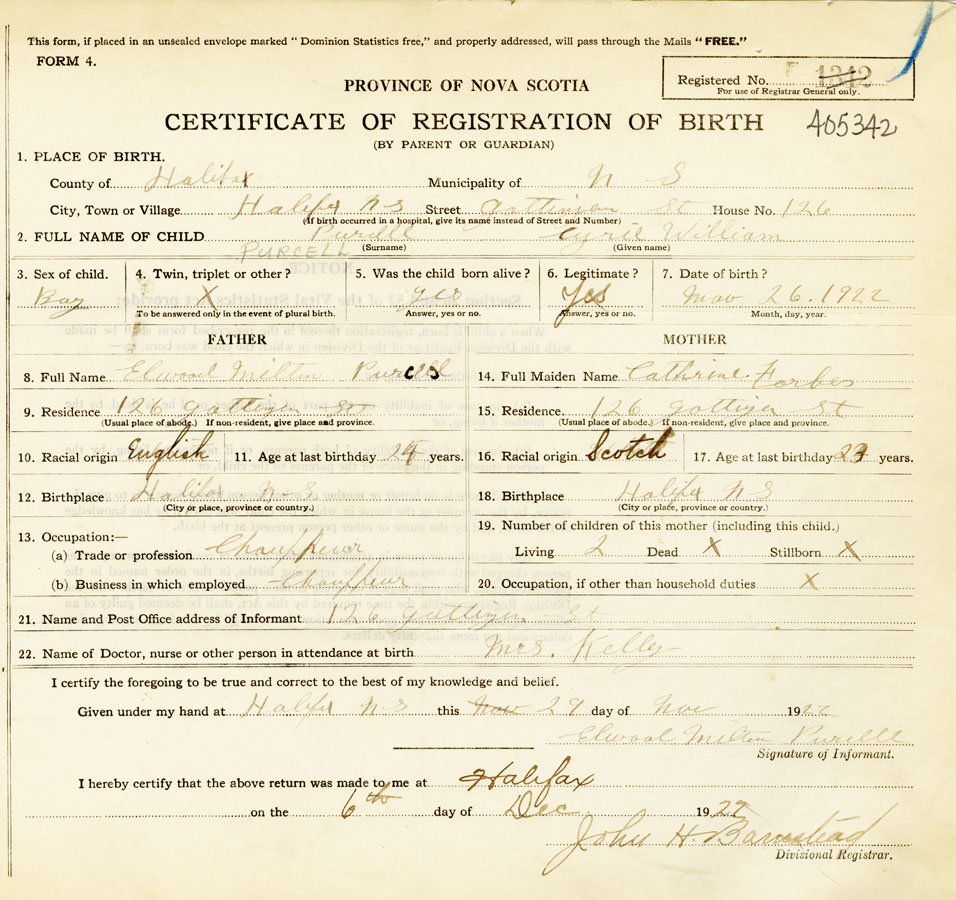 This form, if placed in an unsealed envelope marked “ Dominion Statistics free,” and properly addressed, will pass through the Mails “FREE.”
FORM 4.
Registered No. 1342
For use of Registrar General only.
PROVINCE OF NOVA SCOTIA
CERTIFICATE OF REGISTRATION OF BIRTH 405342
(BY PARENT OR GUARDIAN)
1. PLACE OF BIRTH.
County of Halifax Municipality of N S
City, Town or Village Halifax N S Street St House No. 126
(If birth occurred in a hospital, give its name instead of Street and Number)
2. FULL NAME OF CHILD Purcell Cyril William
PURCELL (Surname) (Given name)
3. Sex of child. 4. Twin, triplet or other? 5. Was the child born alive? 6. Legitimate? 7. Date of birth?
Boy X yes Yes Nov 26. 1922
To be answered only in the event of plural birth. Answer, yes or no. Answer, yes or no. Month, day, year.
FATHER MOTHER
8. Full Name Elwood Milton Purcell 14. Full Maiden Name Cathrine Forbes
9. Residence 126 St 15. Residence 126 St
(Usual place of abode.) If non-resident, give place and province. (Usual place of abode.) If non-resident, give place and province.
10. Racial origin English 11. Age at last birthday 24 years. 16. Racial origin Scotch 17. Age at last birthday years.
12. Birthplace Halifax N S 18. Birthplace Halifax N S
(City or place, province or country.) (City or place, province or country.)
19. Number of children of this mother (including this child.)
13. Occupation:—
(a) Trade or profession Chauffeur Living 2 Dead X Stillborn X
(b) Business in which employed Chauffeur 20. Occupation, if other than household duties X
21. Name and Post Office address of Informant 126 St
22. Name of Doctor, nurse or other person in attendance at birth Mrs. Kelly
I certify the foregoing to be true and correct to the best of my knowledge and belief.
Given under my hand at Halifax N S this Nov 29 day of Nov 1922
Elwood Milton Purcell
Signature of Informant.
I hereby certify that the above return was made to me at Halifax
on the 6th day of Dec 1922
John H. Barnstead
Divisional Registrar.